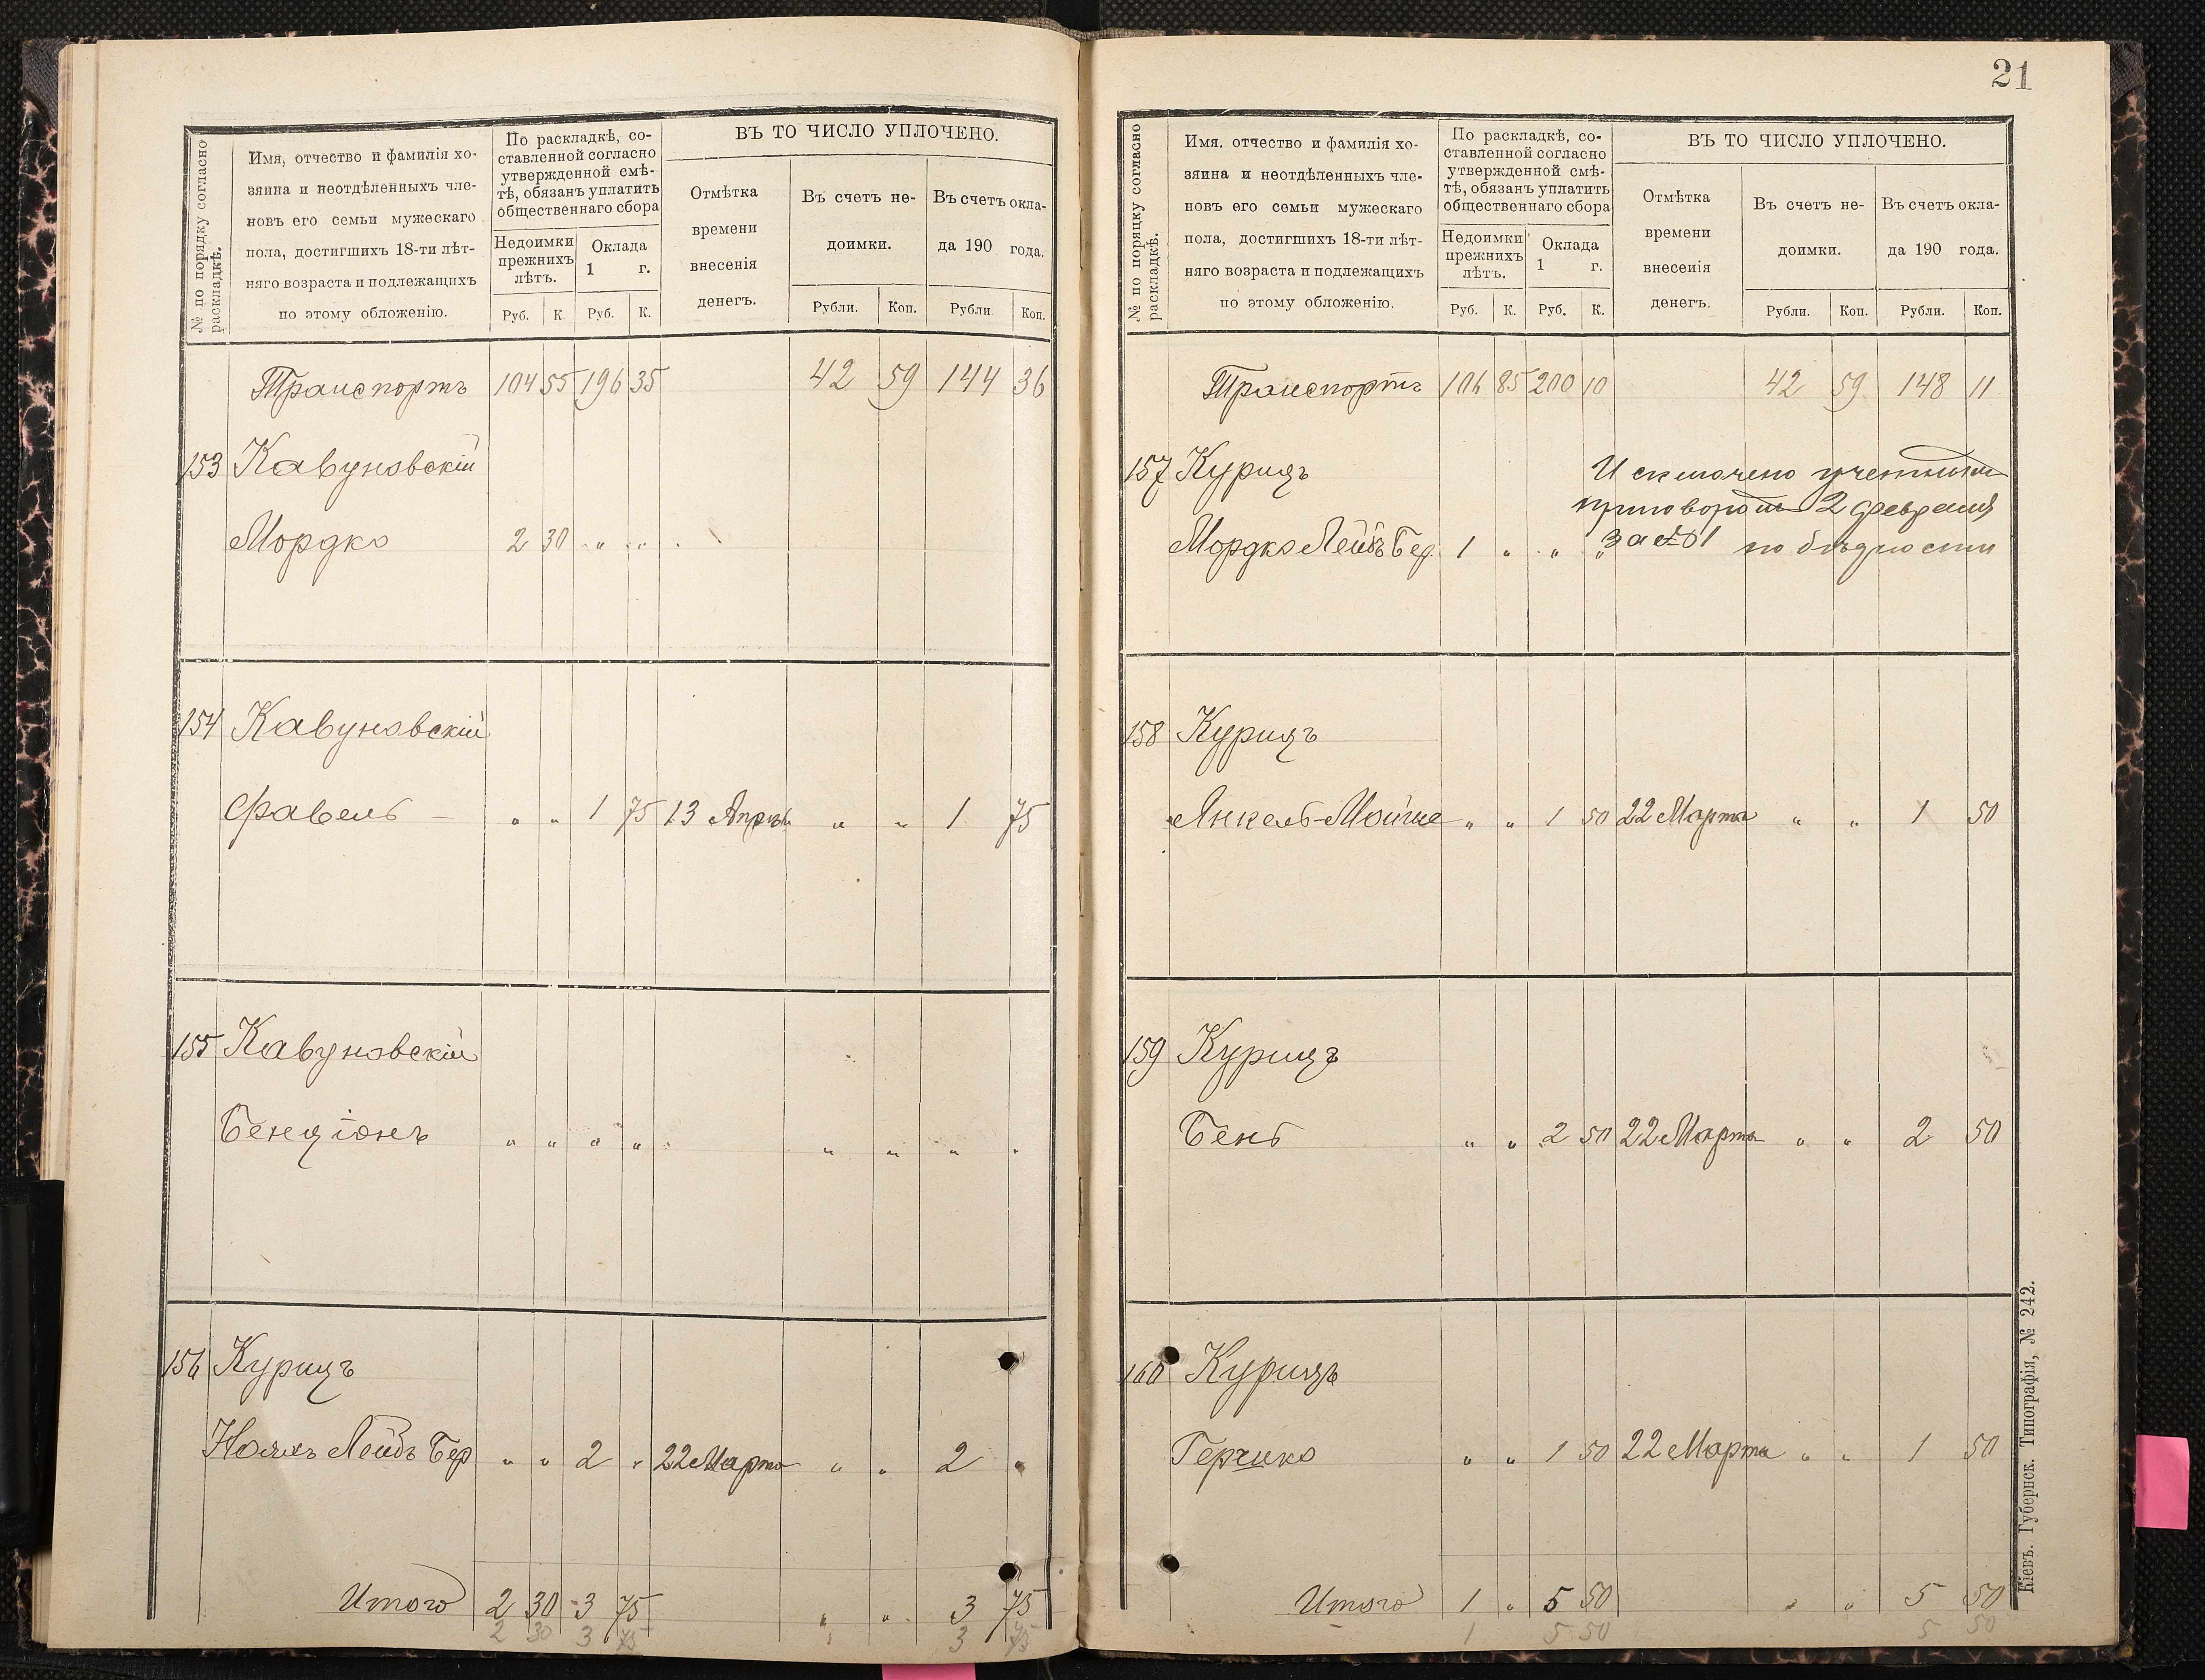 № по порядку согласно
раскладкѣ.
Имя, отчество и фамилія хо-
зяина и неотдѣленныхъ чле-
новъ его семьи мужескаго
пола, достигшихъ 18-ти лѣт-
няго возраста и подлежащихъ
по этому обложенію.
По раскладкѣ, со-
ставленной согласно
утвержденной смѣ-
тѣ, обязанъ уплатить
общественнаго сбора
Недоимки
прежнихъ
лѣтъ.
Оклада
1 г.
Руб. К. Руб. К.
ВЪ ТО ЧИСЛО УПЛОЧЕНО.
Отмѣтка
времени
внесенія
денегъ.
Въ счетъ не-
доимки.
Въ счетъ окла-
да 190 года.
Рубли. Коп. Рубли Коп.
Транспортъ 104 55 196 35 42 59 144 36
153 Кавуновскій
Мордко 2 30 " "
154 Кавуновскій
Фавель " " 1 75 13 Апрѣл " " 1 75
155 Кавуновскій
Бенціонъ " " " " " " " "
156 Курицъ
Лейбъ Бер " " 2 " 22 Марта " " 2 "
Итого 2 30 3 75 " " 3 75
2 30 3 75 3 75
21
№ по порядку согласно
раскладкѣ.
Имя. отчество и фамилія хо-
зяина и неотдѣленныхъ чле-
новъ его семьи мужескаго
пола, достигшихъ 18-ти лѣт-
няго возраста и подлежащихъ
по этому обложенію.
По раскладкѣ, со-
ставленной согласно
утвержденной смѣ-
тѣ, обязанъ уплатить
общественнаго сбора
Недоимки
прежнихъ
лѣтъ.
Оклада
1 г.
Руб. К. Руб. К.
ВЪ ТО ЧИСЛО УПЛОЧЕНО.
Отмѣтка
времени
внесенія
денегъ.
Въ счетъ не-
доимки.
Въ счетъ окла-
да 190 года.
Рубли. Коп. Рубли. Коп.
Транспортъ 106 85 200 10 42 59 148 11
157 Курицъ Исключено учетнымъ
приговоромъ 2 февраля
Мордко Лейбъ Бер. 1 " " " за № 1 по бѣдности
158 Курицъ
Янкель-Мойше " " 1 50 22 Марта " " 1 50
159 Курицъ
Бень " " 2 50 22 Марта " " 2 50
160 Курицъ
Гершко " " 1 50 22 Марта " " 1 50
Итого 1 " 5 50 " " 5 50
1 5 50 5 50
Кіевъ. Губернск. Типографія, № 242.